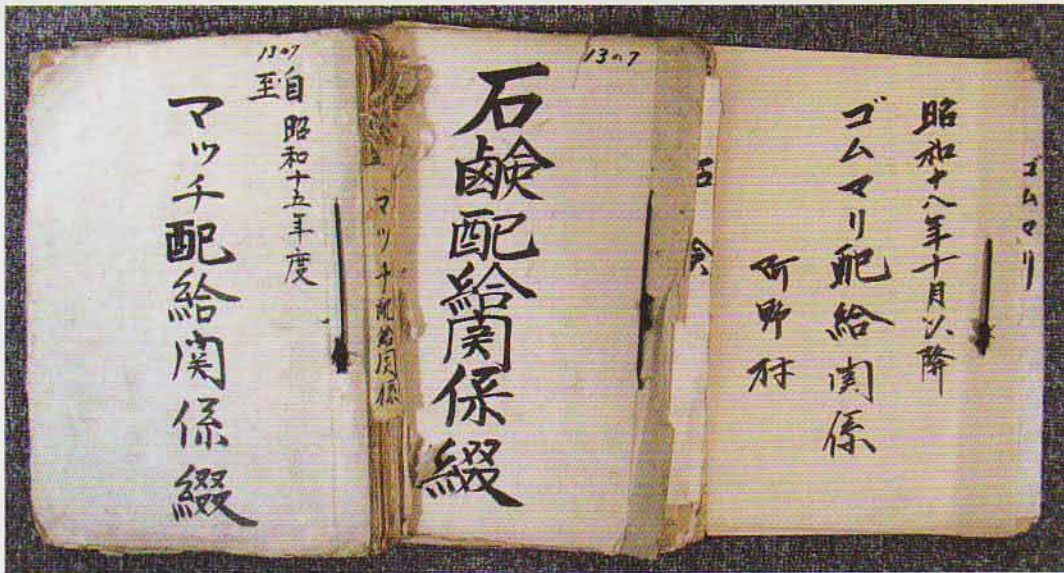 ゴムマリ
昭和十八年十月以降
ゴムマリ配給関係
町野村
13の7
石鹸配給関係綴
マッチ配給関係
13の7
自
至
昭和十五年度
マッチ配給関係綴